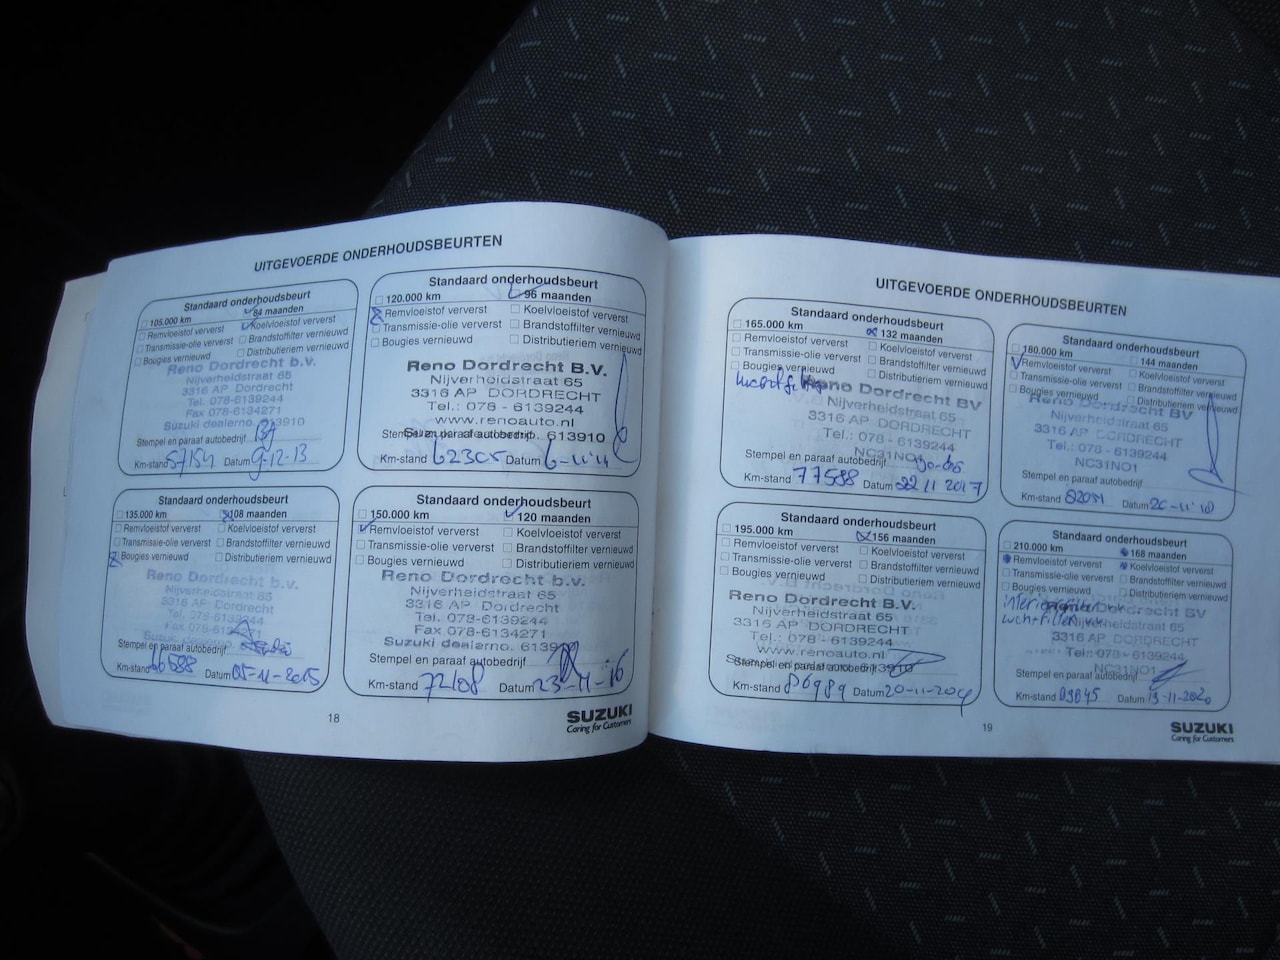 UITGEVOERDE ONDERHOUDSBEURTEN
Standaard onderhoudsbeurt
105.000 km 84 maanden
Remvloeistof ververst Koelvloeistof ververst
Transmissie-olie ververst Brandstoffilter vernieuwd
Bougies vernieuwd Distributieriem vernieuwd
Reno Dordrecht b.v.
Nijverheidstraat 65
3316 AP Dordrecht
Tel. 078-6139244
Fax 078-6134271
Suzuki dealerno. 613910
Stempel en paraaf autobedrijf
Km-stand 57154 Datum 9-12-13
Standaard onderhoudsbeurt
120.000 km 96 maanden
Remvloeistof ververst Koelvloeistof ververst
Transmissie-olie ververst Brandstoffilter vernieuwd
Bougies vernieuwd Distributieriem vernieuwd
Reno Dordrecht B.V.
Nijverheidstraat 65
3316 AP DORDRECHT
Tel.: 078 - 6139244
www.renoauto.nl
Stempel en paraaf autobedrijf 613910
Km-stand 62305 Datum 6-11-14
Standaard onderhoudsbeurt
135.000 km 108 maanden
Remvloeistof ververst Koelvloeistof ververst
Transmissie-olie ververst Brandstoffilter vernieuwd
Bougies vernieuwd Distributieriem vernieuwd
Reno Dordrecht b.v.
Nijverheidstraat 65
3316 AP Dordrecht
Tel. 078-6139244
Fax 078-6134271
Stempel en paraaf autobedrijf
Km-stand 66588 Datum 05-11-2015
Standaard onderhoudsbeurt
150.000 km 120 maanden
Remvloeistof ververst Koelvloeistof ververst
Transmissie-olie ververst Brandstoffilter vernieuwd
Bougies vernieuwd Distributieriem vernieuwd
Reno Dordrecht b.v.
Nijverheidstraat 65
3316 AP Dordrecht
Tel. 078-6139244
Fax 078-6134271
Suzuki dealerno. 613910
Stempel en paraaf autobedrijf
Km-stand 72108 Datum 23-11-16
18
SUZUKI
Caring for Customers
UITGEVOERDE ONDERHOUDSBEURTEN
Standaard onderhoudsbeurt
165.000 km 132 maanden
Remvloeistof ververst Koelvloeistof ververst
Transmissie-olie ververst Brandstoffilter vernieuwd
Bougies vernieuwd Distributieriem vernieuwd
Reno Dordrecht BV
Nijverheidstraat 65
3316 AP DORDRECHT
Tel: 078 - 6139244
NC31NO1
Stempel en paraaf autobedrijf
Km-stand 77588 Datum 22 11 2017
Standaard onderhoudsbeurt
180.000 km 144 maanden
Remvloeistof ververst Koelvloeistof ververst
Transmissie-olie ververst Brandstoffilter vernieuwd
Bougies vernieuwd Distributieriem vernieuwd
Reno Dordrecht BV
Nijverheidstraat 65
3316 AP DORDRECHT
Tel: 078 - 6139244
NC31NO1
Stempel en paraaf autobedrijf
Km-stand Datum
Standaard onderhoudsbeurt
195.000 km 156 maanden
Remvloeistof ververst Koelvloeistof ververst
Transmissie-olie ververst Brandstoffilter vernieuwd
Bougies vernieuwd Distributieriem vernieuwd
Reno Dordrecht B.V.
Nijverheidstraat 65
3316 AP DORDRECHT
Tel.: 078 - 6139244
www.renoauto.nl
Stempel en paraaf autobedrijf
Km-stand 86989 Datum
Standaard onderhoudsbeurt
210.000 km 168 maanden
Remvloeistof ververst Koelvloeistof ververst
Transmissie-olie ververst Brandstoffilter vernieuwd
Bougies vernieuwd Distributieriem vernieuwd
Dordrecht BV
Nijverheidstraat 65
3316 AP DORDRECHT
Tel: 078 - 6139244
NC31NO1
Stempel en paraaf autobedrijf
Km-stand Datum 13-11-2020
19
SUZUKI
Caring for Customers